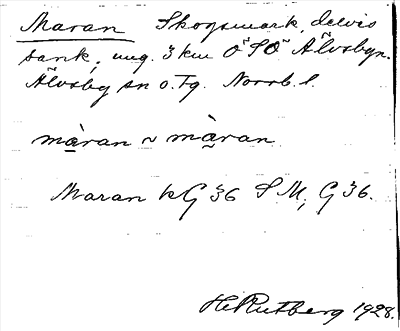 Maran Skogsmark, delvis
sank, ung. 3 km O SO Älvsbyn.
Älvsby sn o. Tg. Norrb. l.
màran ~ màran.
Maran kG 36 SM, G 36.
H. Rutberg 1928.